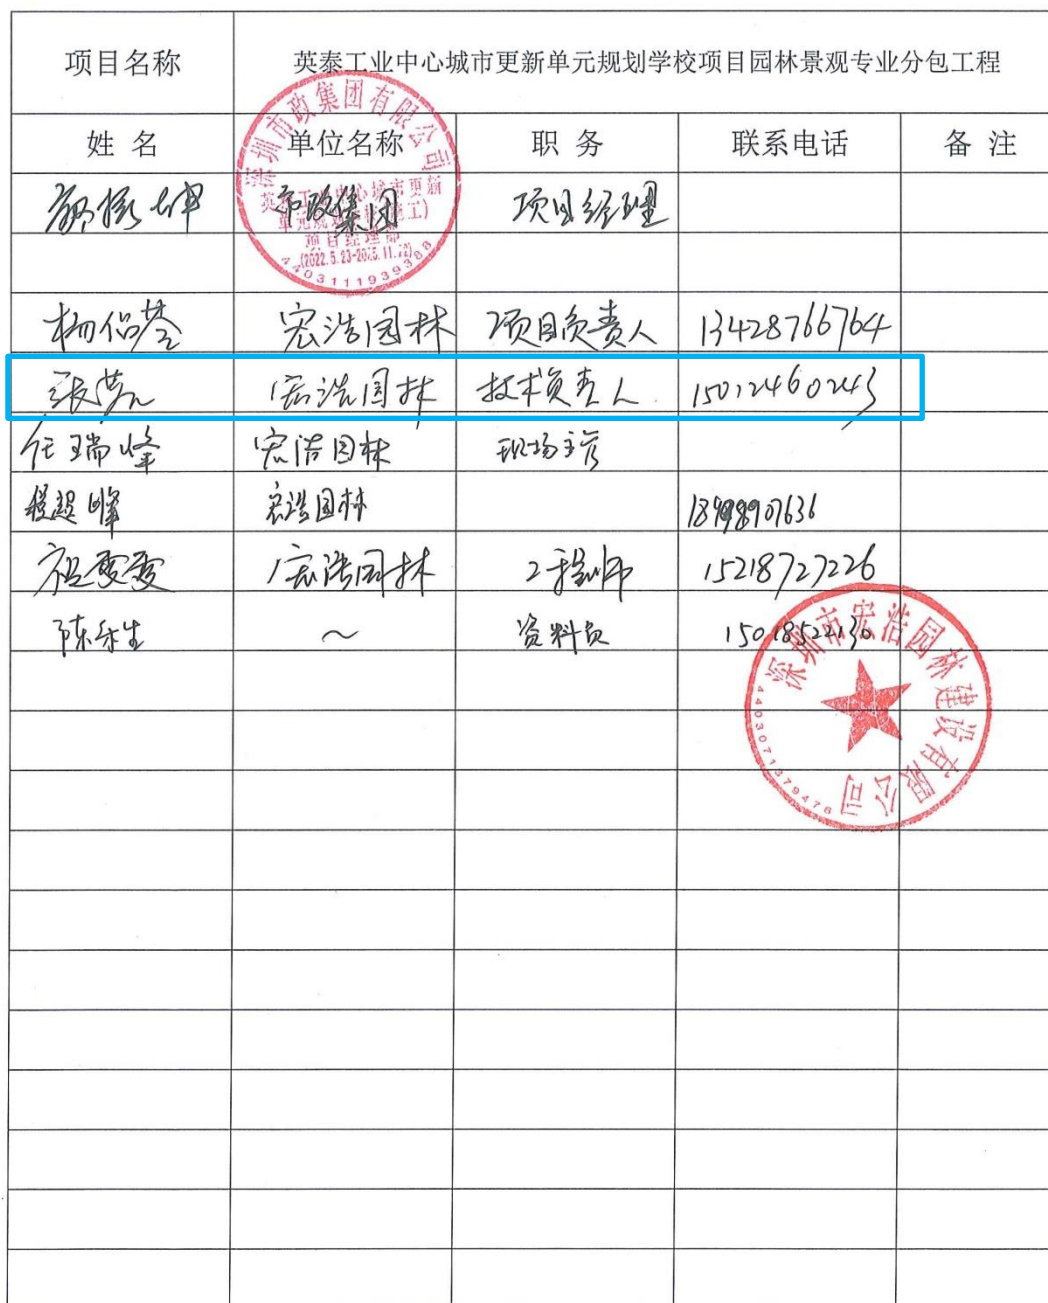 项目名称 英泰工业中心城市更新单元规划学校项目园林景观专业分包工程
姓 名 单位名称 职 务 联系电话 备 注
市政集团 项目经理
宏浩园林 项目负责人 13428766764
张芳 宏浩园林 技术负责人 15012460243
任瑞峰 宏浩园林 现场主管
程超峰 宏浩园林
祖雯雯 宏浩园林 工程师 15218727226
陈 生 ～ 资料员 15018522130
深圳市政集团有限公司
英泰工业中心城市更新
项目经理部
4403111939388
深圳市宏浩园林建设有限公司
4403071379476